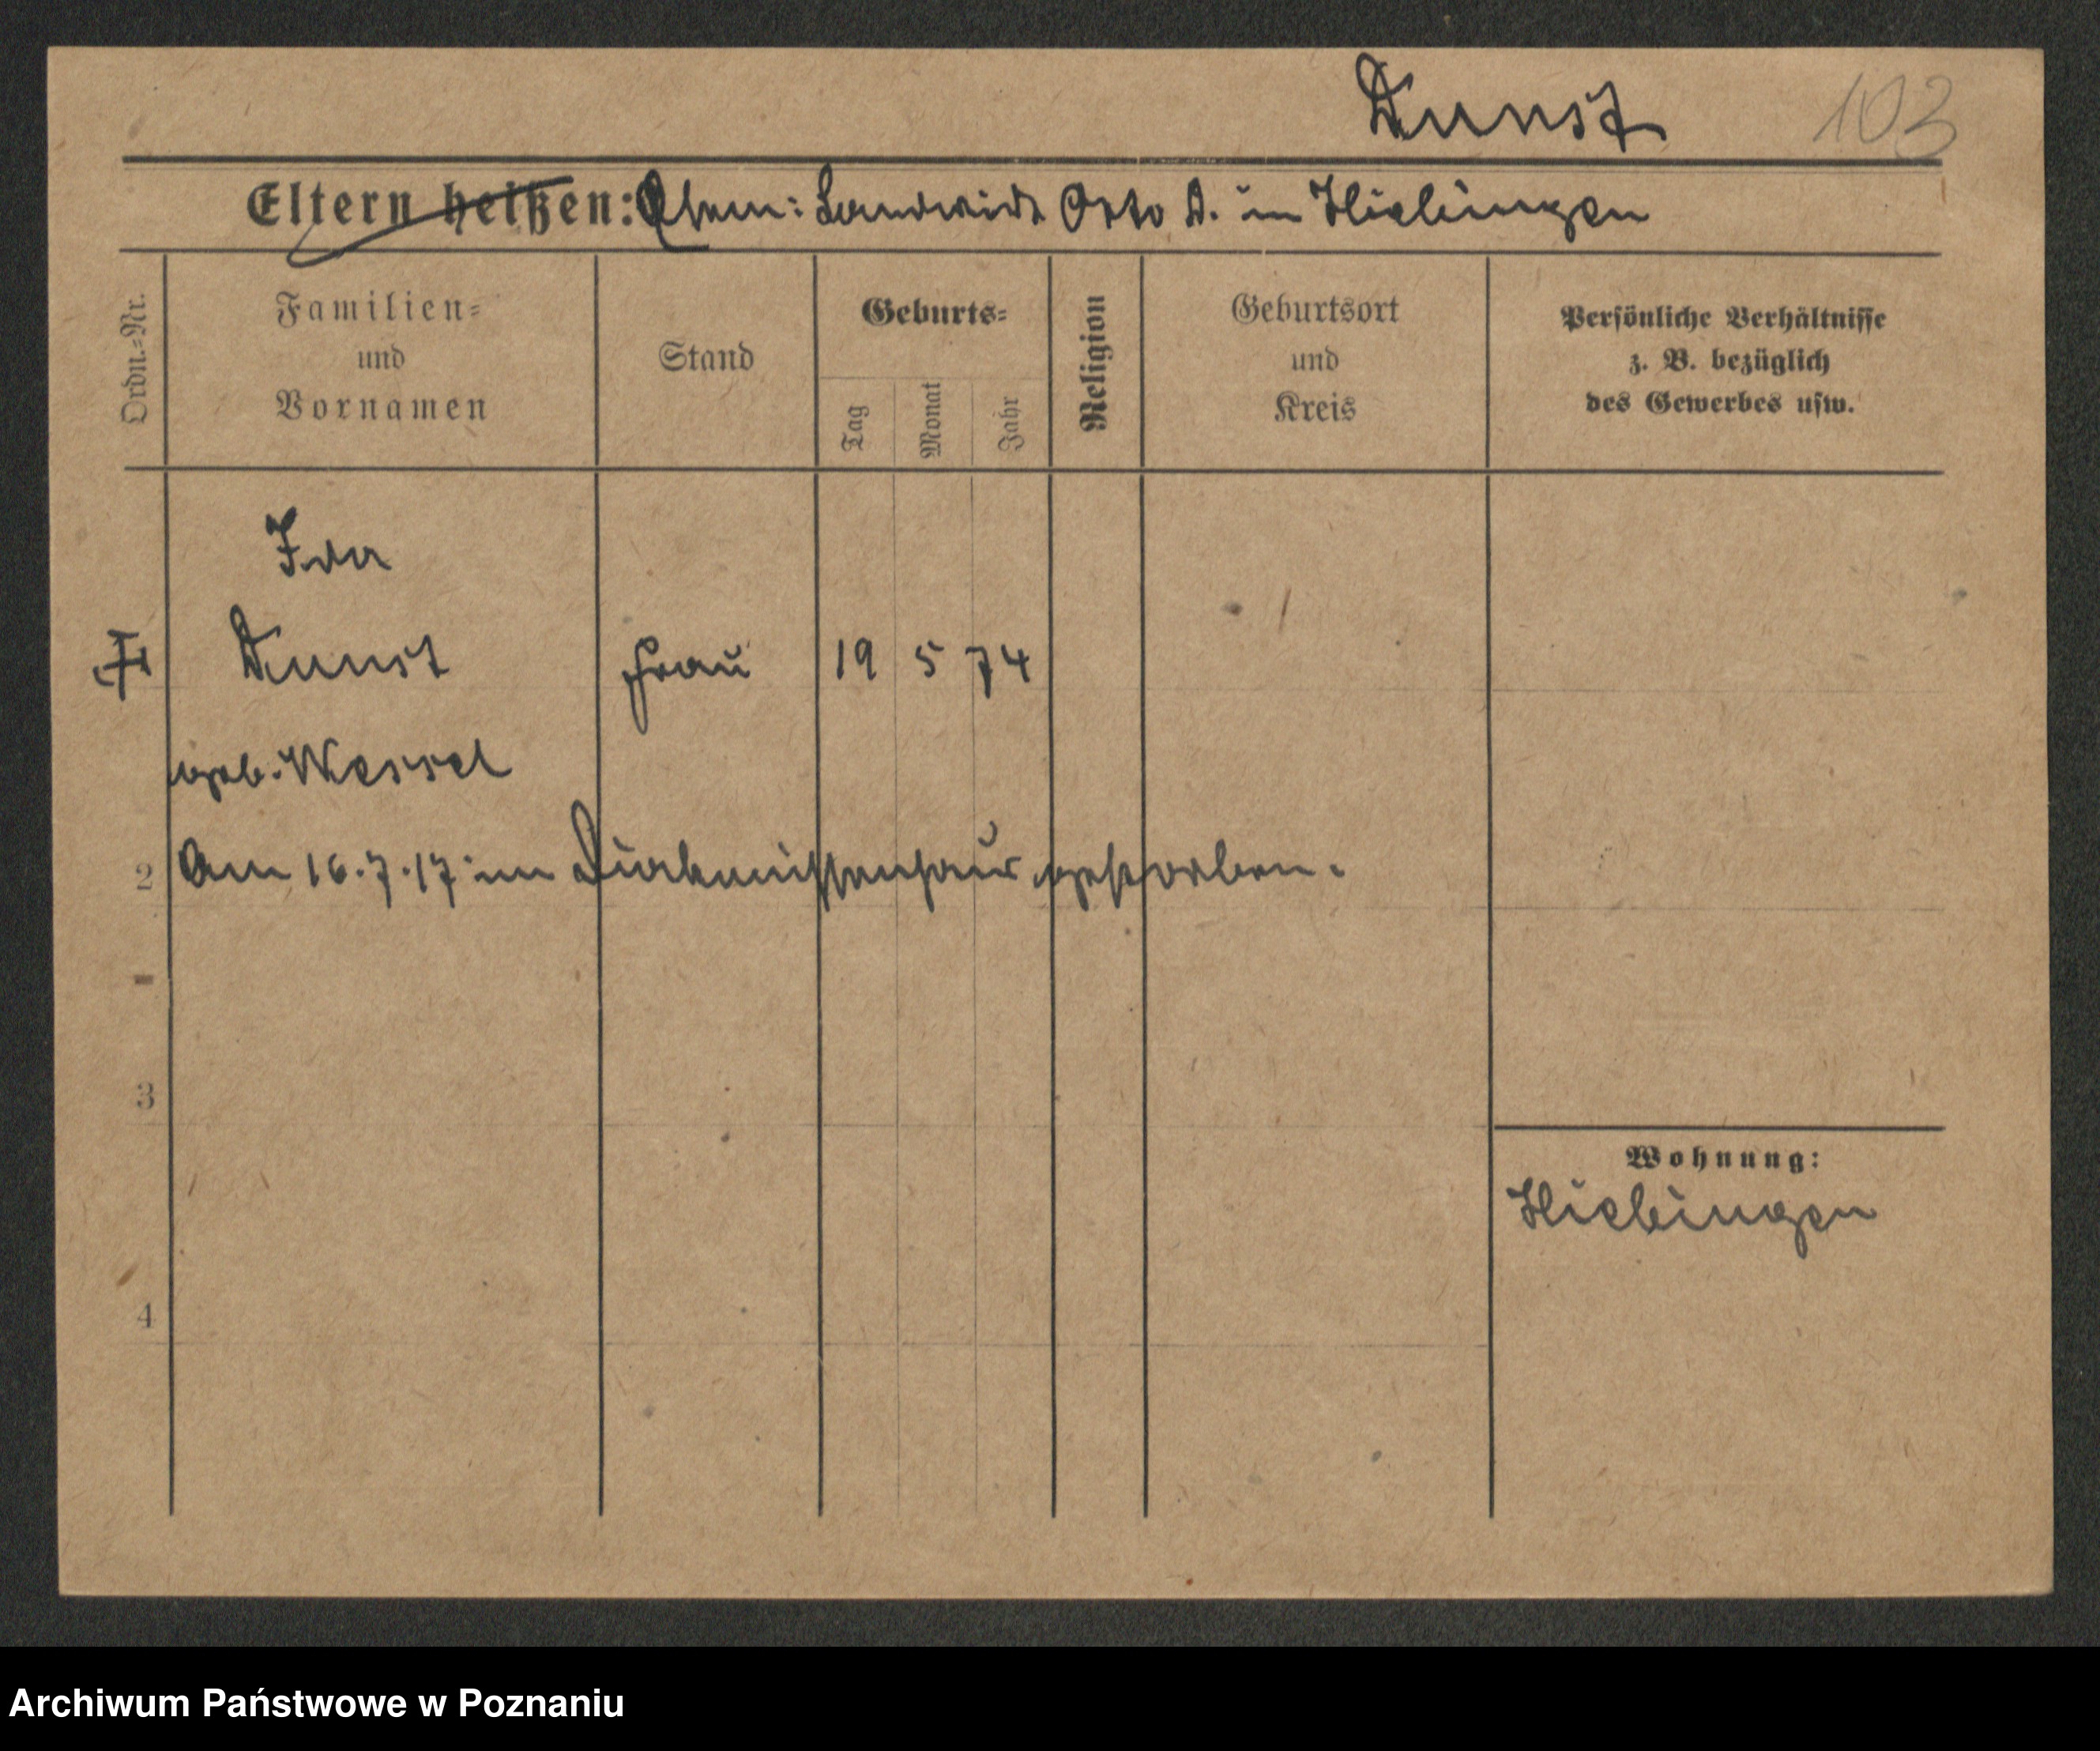 Dunst
103
Eltern heißen: Ehem: Landwirt Otto D. in Hiebingen
Ordn.-Nr.
Familien-
und
Vornamen
Stand
Geburts-
Tag
Monat
Jahr
Religion
Geburtsort
und
Kreis
Persönliche Verhältnisse
z. B. bezüglich
des Gewerbes usw.
Ida
Dunst
Frau
19 5 74
geb. Wessel
2
Am 16.7.17 im Diakonissenhaus gestorben.
3
Wohnung:
Hiebingen
4
Archiwum Państwowe w Poznaniu